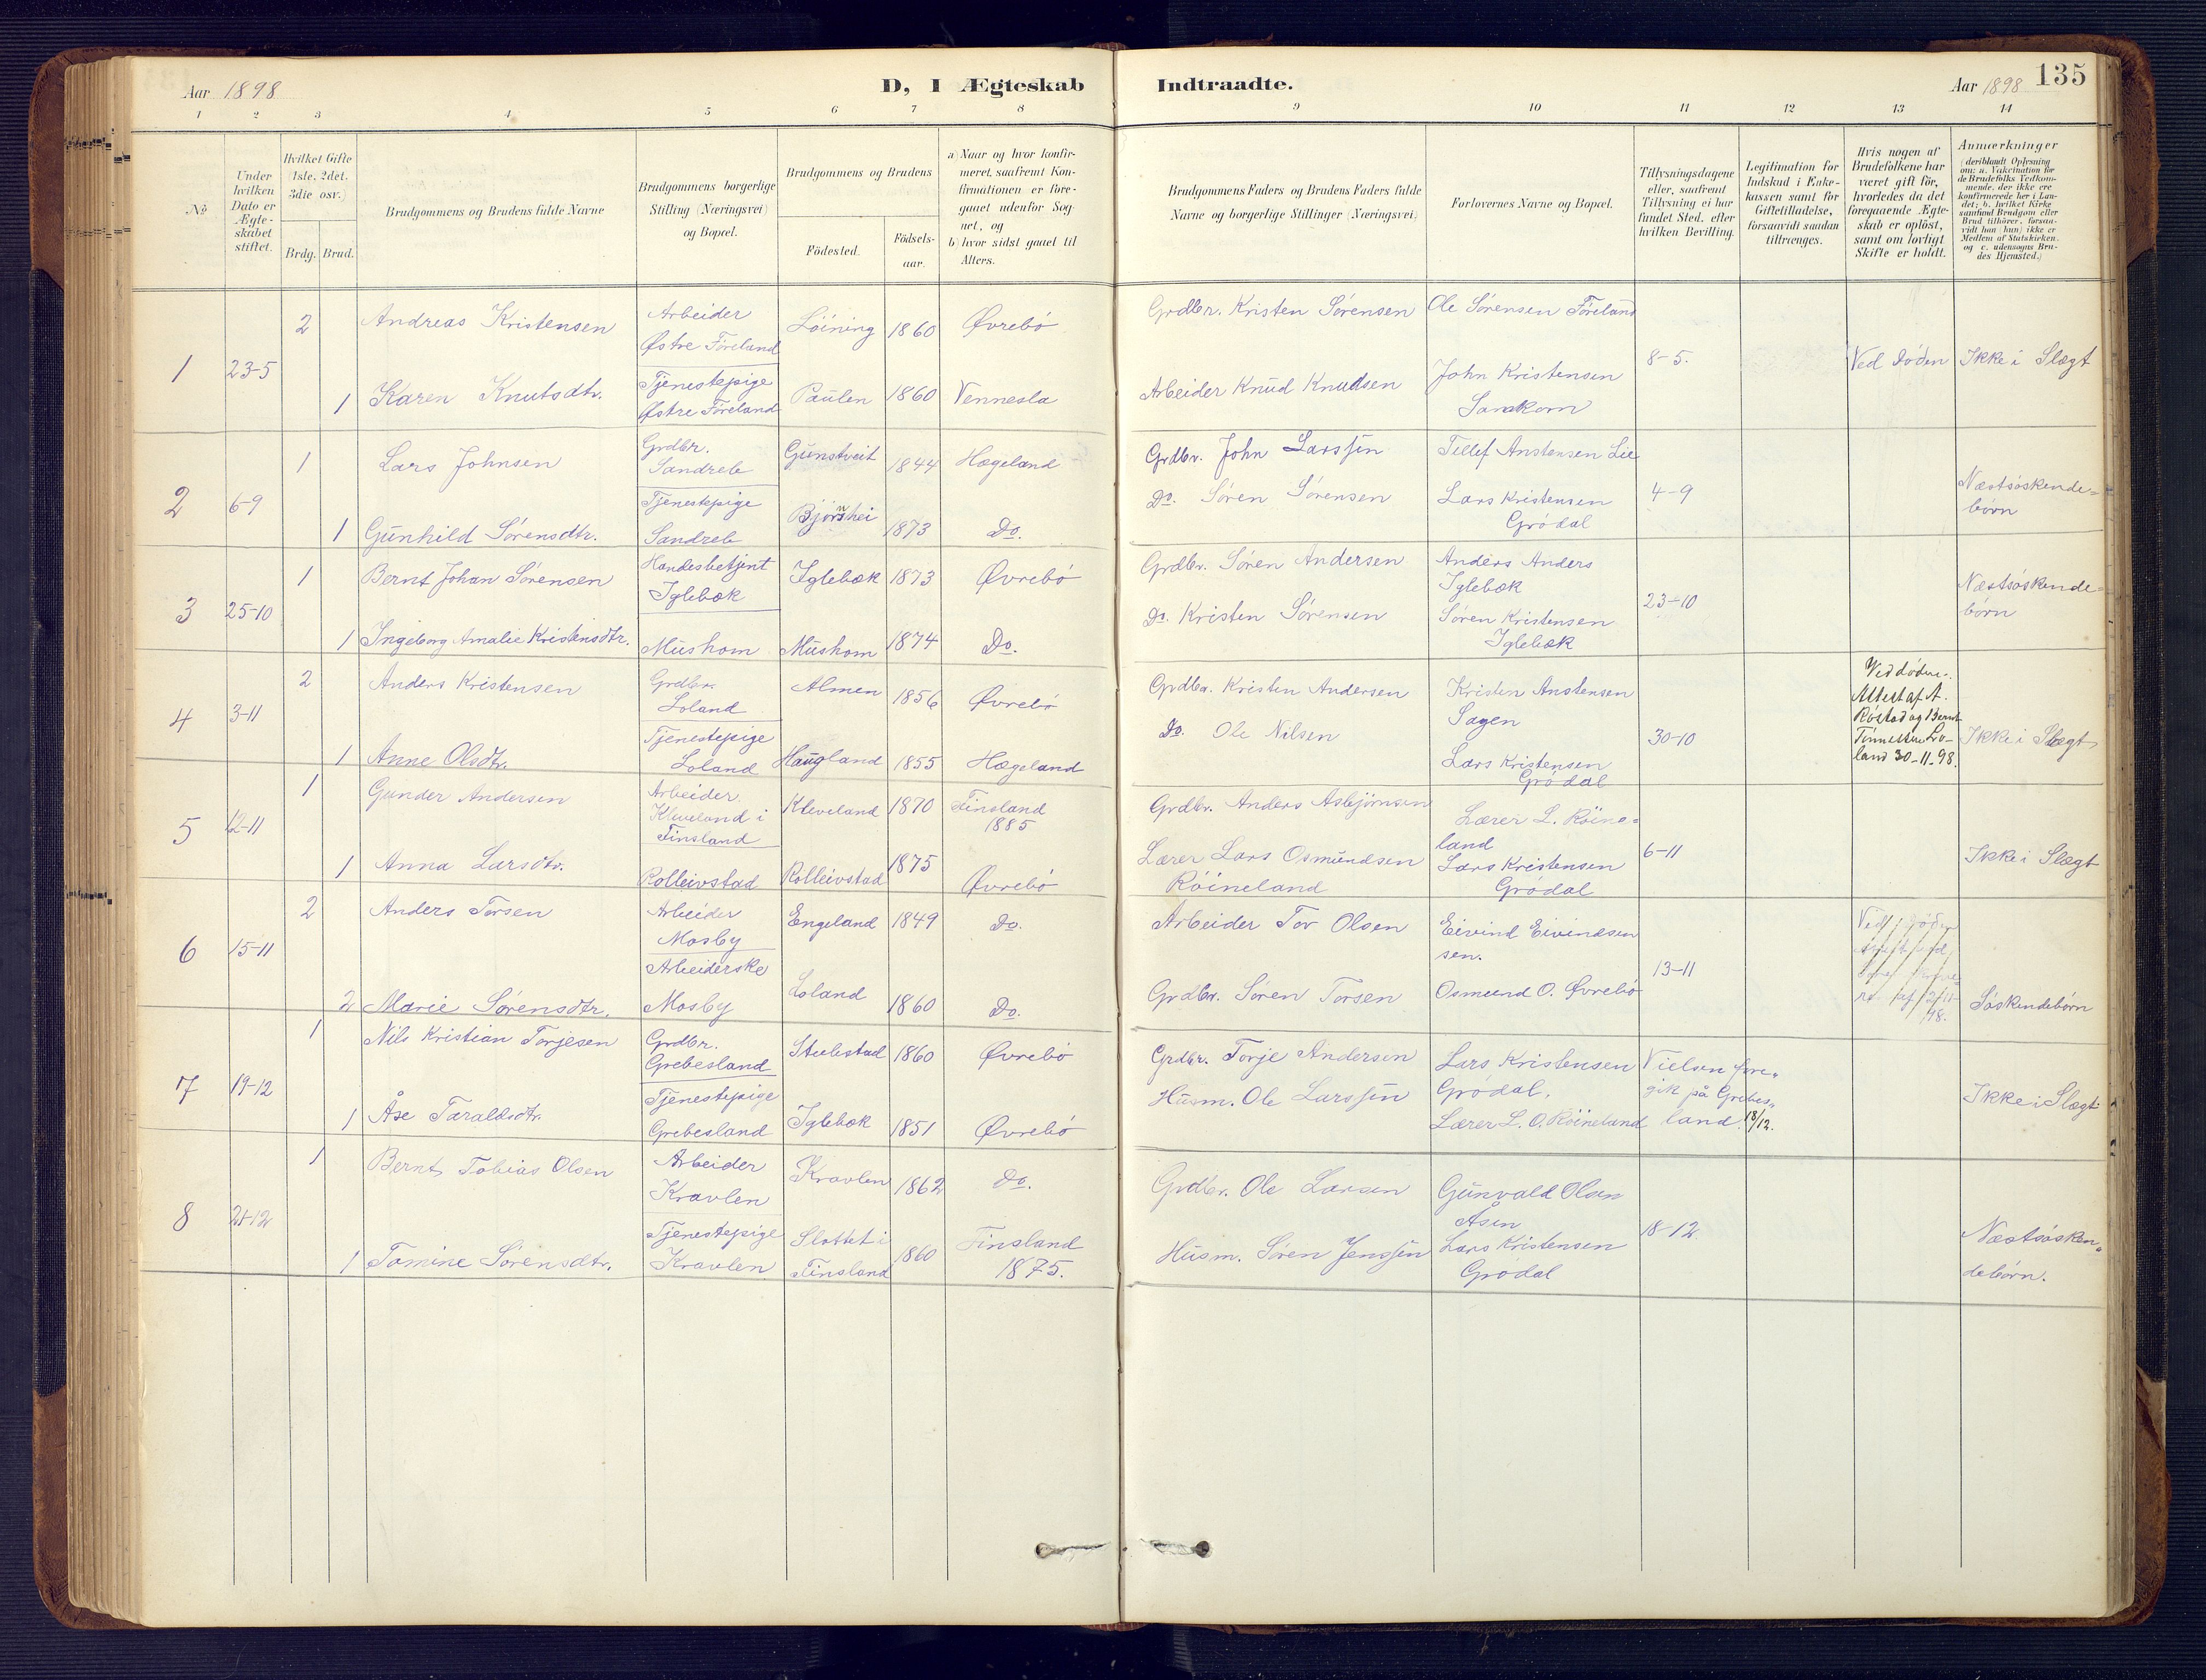 Aar 1898
D, I Ægteskab
Indtraadte.
Aar 1898
135
1 2 3 4 5 6 7 8 9 10 11 12 13 14
No
Under hvilken Dato er Ægteskabet stiftet.
Hvilket Gifte (1ste, 2det, 3die osv.)
Brdg. Brud.
Brudgommens og Brudens fulde Navne
Brudgommens borgerlige Stilling (Næringsvei) og Bopæl.
Brudgommens og Brudens
Födested.
Födsels-aar.
a) Naar og hvor konfirmeret, saafremt Konfirmationen er foregaaet udenfor Sognet, og
b) hvor sidst gaaet til Alters.
Brudgommens Faders og Brudens Faders fulde Navne og borgerlige Stillinger (Næringsvei)
Forlovernes Navne og Bopæl.
Tillysningsdagene eller, saafremt Tillysning ei har fundet Sted, efter hvilken Bevilling.
Legitimation for Indskud i Enkekassen samt for Giftetilladelse, forsaavidt saadan tiltrænges.
Hvis nogen af Brudefolkene har været gift för, hvorledes da det foregaaende Ægteskab er oplöst, samt om lovligt Skifte er holdt.
Anmærkninger
(deriblandt Oplysning om: a. Vakcination for de Brudefolks Vedkommende, der ikke ere konfirmerede her i Landet; b. hvilket Kirkesamfund Brudgom eller Brud tilhörer, forsaavidt han (hun) ikke er Medlem af Statskirken, og c. udensogns Brudes Hjemsted.)
1 23-5
2 Andreas Kristensen Arbeider Østre Föreland Löining 1860 Øvrebö
Grdbr. Kristen Sørensen Ole Sørensen Föreland
1 Karen Knutsdtr. Tjenestepige Østre Föreland Paulen 1860 Vennesla
Arbeider Knud Knudsen John Kristensen
8-5. Ved Döden Ikke i Slægt
2 6-9
1 Lars Johnsen Grdbr. Sandreb Gunstveit 1844 Hægeland
Grdbr. John Larssen Tellef Anstensen Lie
1 Gunhild Sørensdtr. Tjenestepige Sandreb Bjørnshei 1873 Do.
Do. Sören Sörensen Lars Kristensen Grödal
4-9 Næstsøskendebörn
3 25-10
1 Bernt Johan Sørensen Handesbetjent Iglebæk Iglebæk 1873 Øvrebö
Grdbr. Søren Andersen Anders Anders Iglebæk
1 Ingeborg Amalie Kristensdtr. Mushom Mushom 1874 Do.
Do. Kristen Sørensen Søren Kristensen Iglebæk
23-10 Næstsøskendebörn
4 3-11
2 Anders Kristensen Grdbr. Loland Almen 1856 Øvrebö
Grdbr. Kristen Andersen Kristen Anstensen Sagen
1 Anne Olsdtr. Tjenestepige Loland Haugland 1855 Hægeland
Do. Ole Nilsen Lars Kristensen Grödal
30-10
Ved döden.
Attest af A.
Röstad og Bernt
Loland 30-11-98.
Ikke i Slægt
5 12-11
1 Gunder Andersen Arbeider Kleveland i Finsland Kleveland 1870 Finsland 1885
Grdbr. Anders Asbjørnsen Lærer L. Röineland
1 Anna Larsdtr. Rolleivstad Rolleivstad 1875 Øvrebö
Lærer Lars Osmundsen Röineland Lars Kristensen Grödal
6-11 Ikke i Slægt
6 15-11
2 Anders Torsen Arbeider Mosby Engeland 1849 Do.
Arbeider Tor Olsen Eivind Eivendsen sen.
2 Marie Sørensdtr. Arbeiderske Mosby Loland 1860 Do.
Grdbr. Søren Torsen Osmund O. Øvrebö
13-11
Søskendebörn
7 19-12
1 Nils Kristian Torjesen Grdbr. Grebesland Stubstad 1860 Øvrebö
Grdbr. Torje Andersen Lars Kristensen Grödal.
1 Åse Taraldsdtr. Tjenestepige Grebesland Iglebæk 1851 Øvrebö
Husm. Ole Larssen Lærer L. O. Röineland
Vielsen foregik på Grebesland 18/12.
Ikke i Slægt
8 21-12
1 Bernt Tobias Olsen Arbeider Kravlen Kravlen 1862 Do.
Grdbr. Ole Larsen Gunvald Olsen Åsen
1 Tomine Sørensdtr. Tjenestepige Kravlen Slottet i Finsland 1860 Finsland 1875.
Husm. Søren Jenssen Lars Kristensen Grödal
18-12. Næstsøskendebörn.